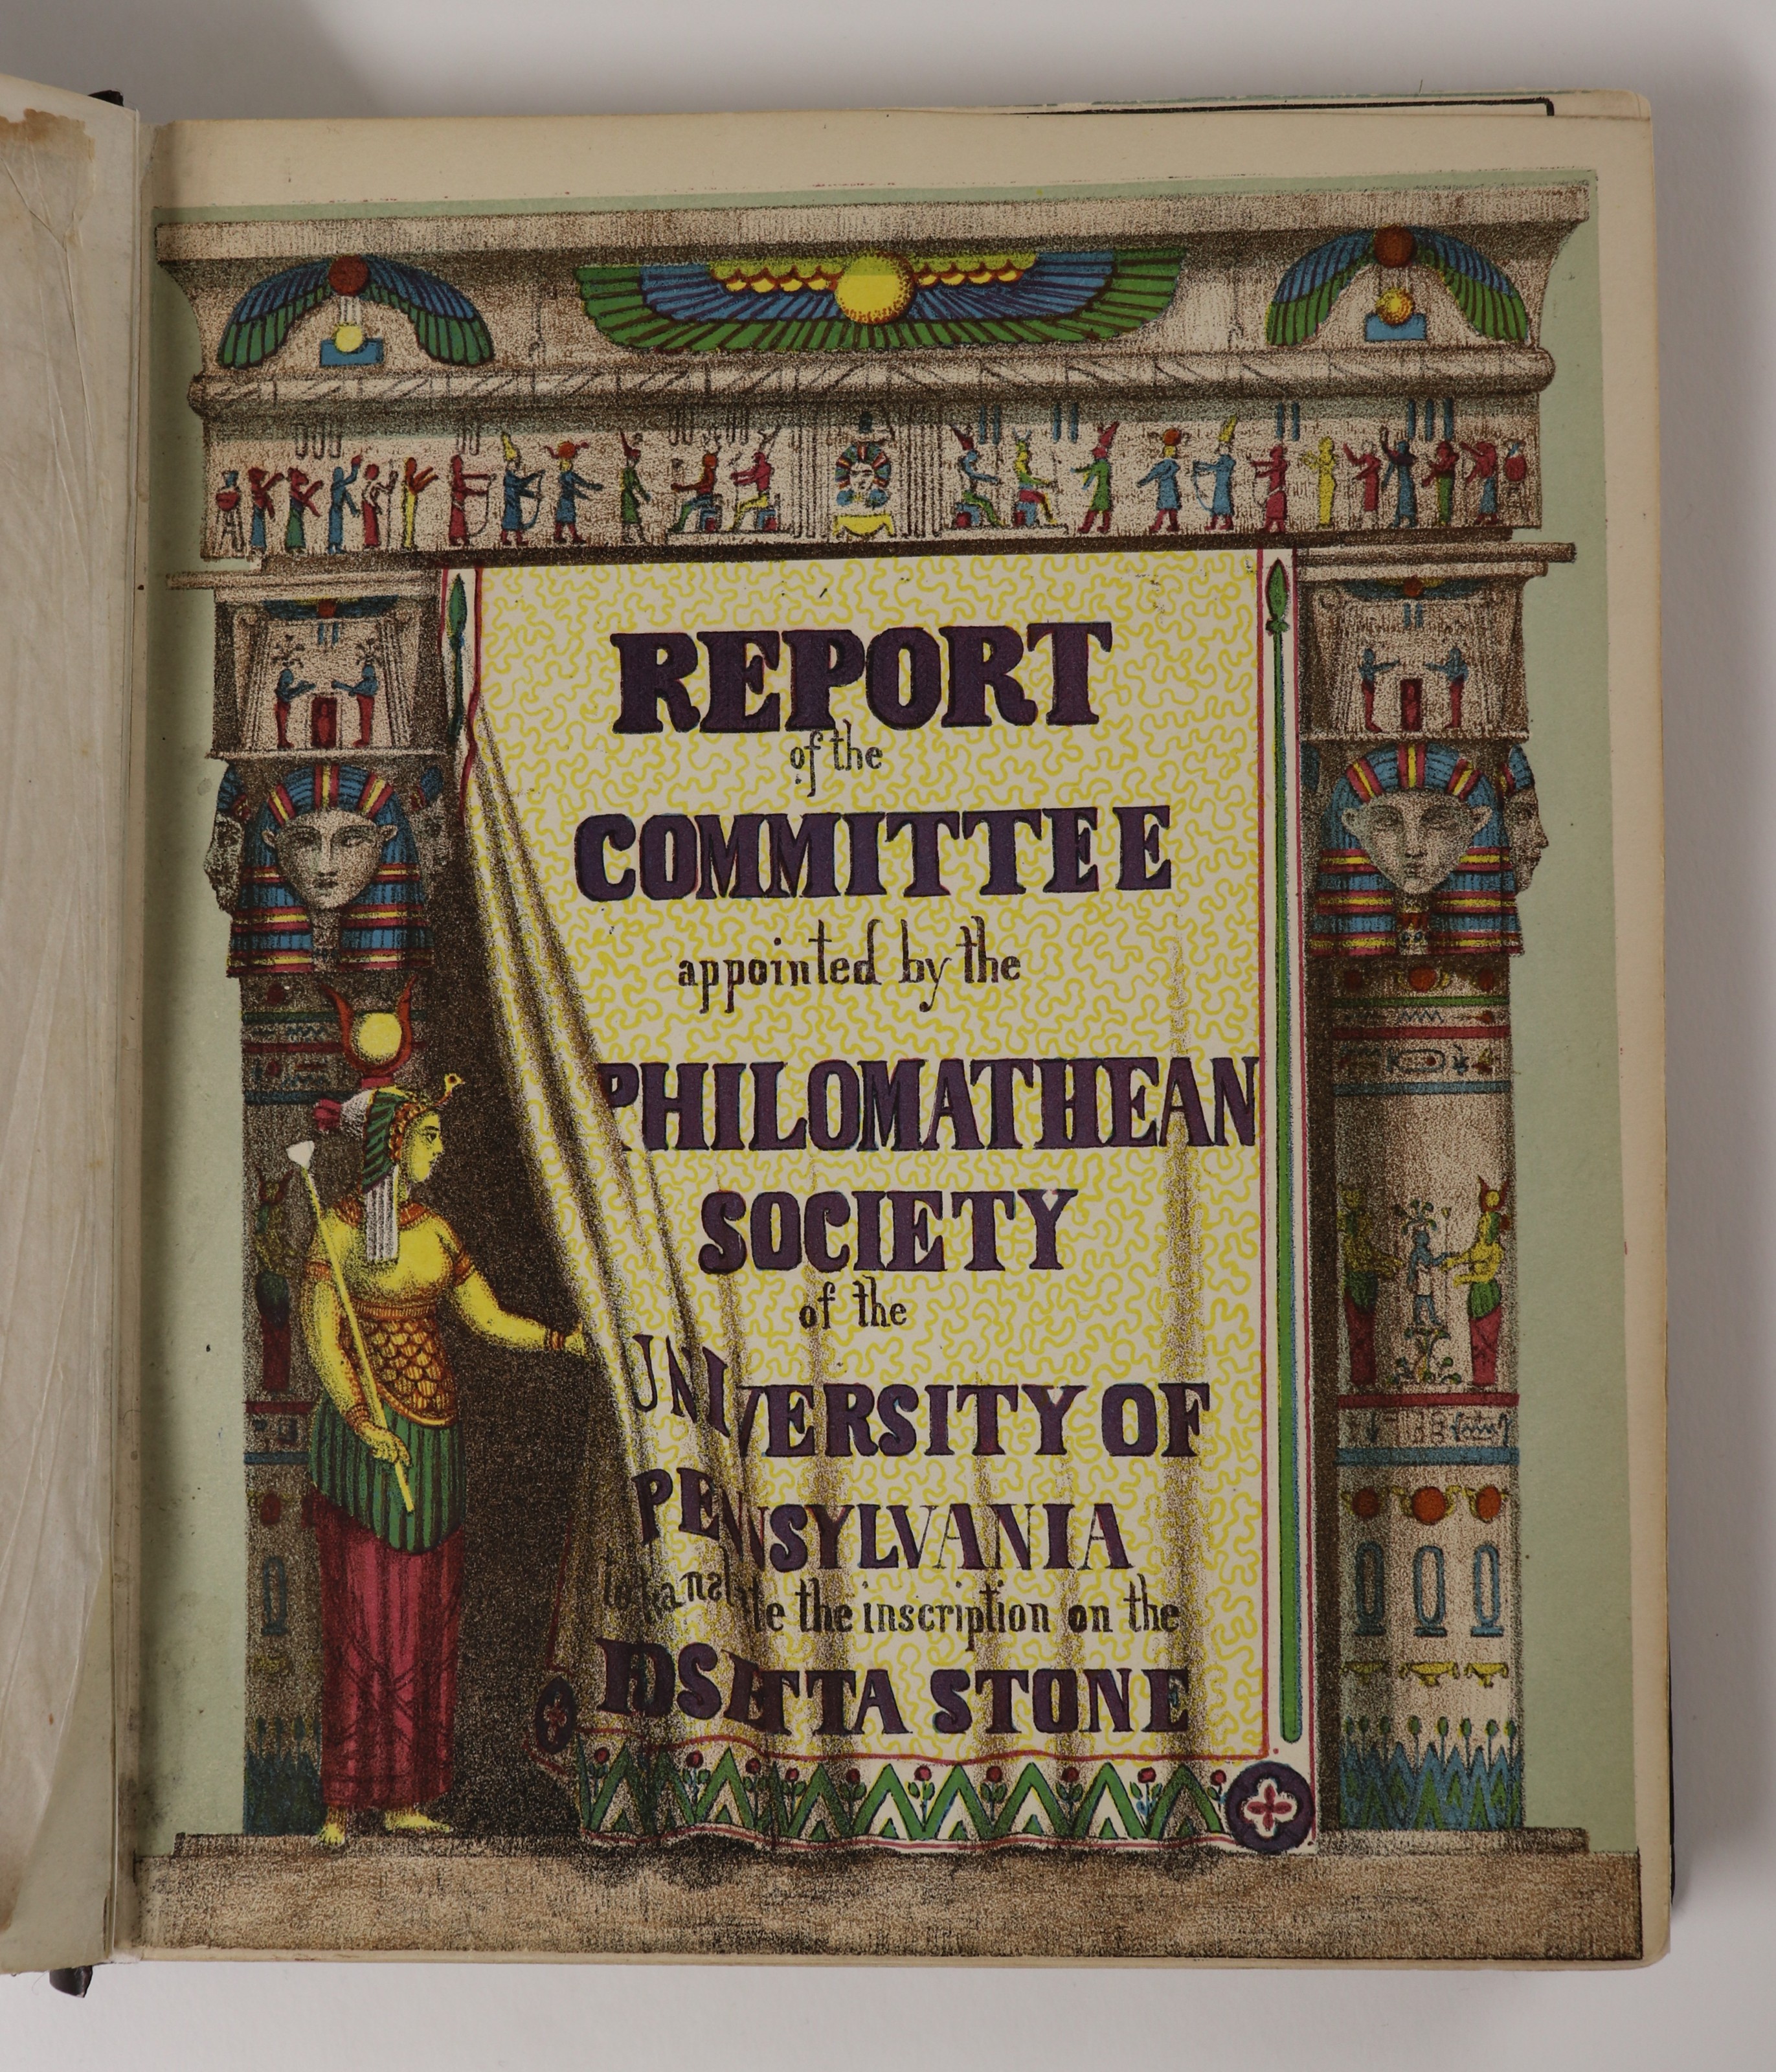 REPORT
of the
COMMITTEE
appointed by the
PHILOMATHEAN
SOCIETY
of the
UNIVERSITY OF
PENNSYLVANIA
to translate the inscription on the
ROSETTA STONE